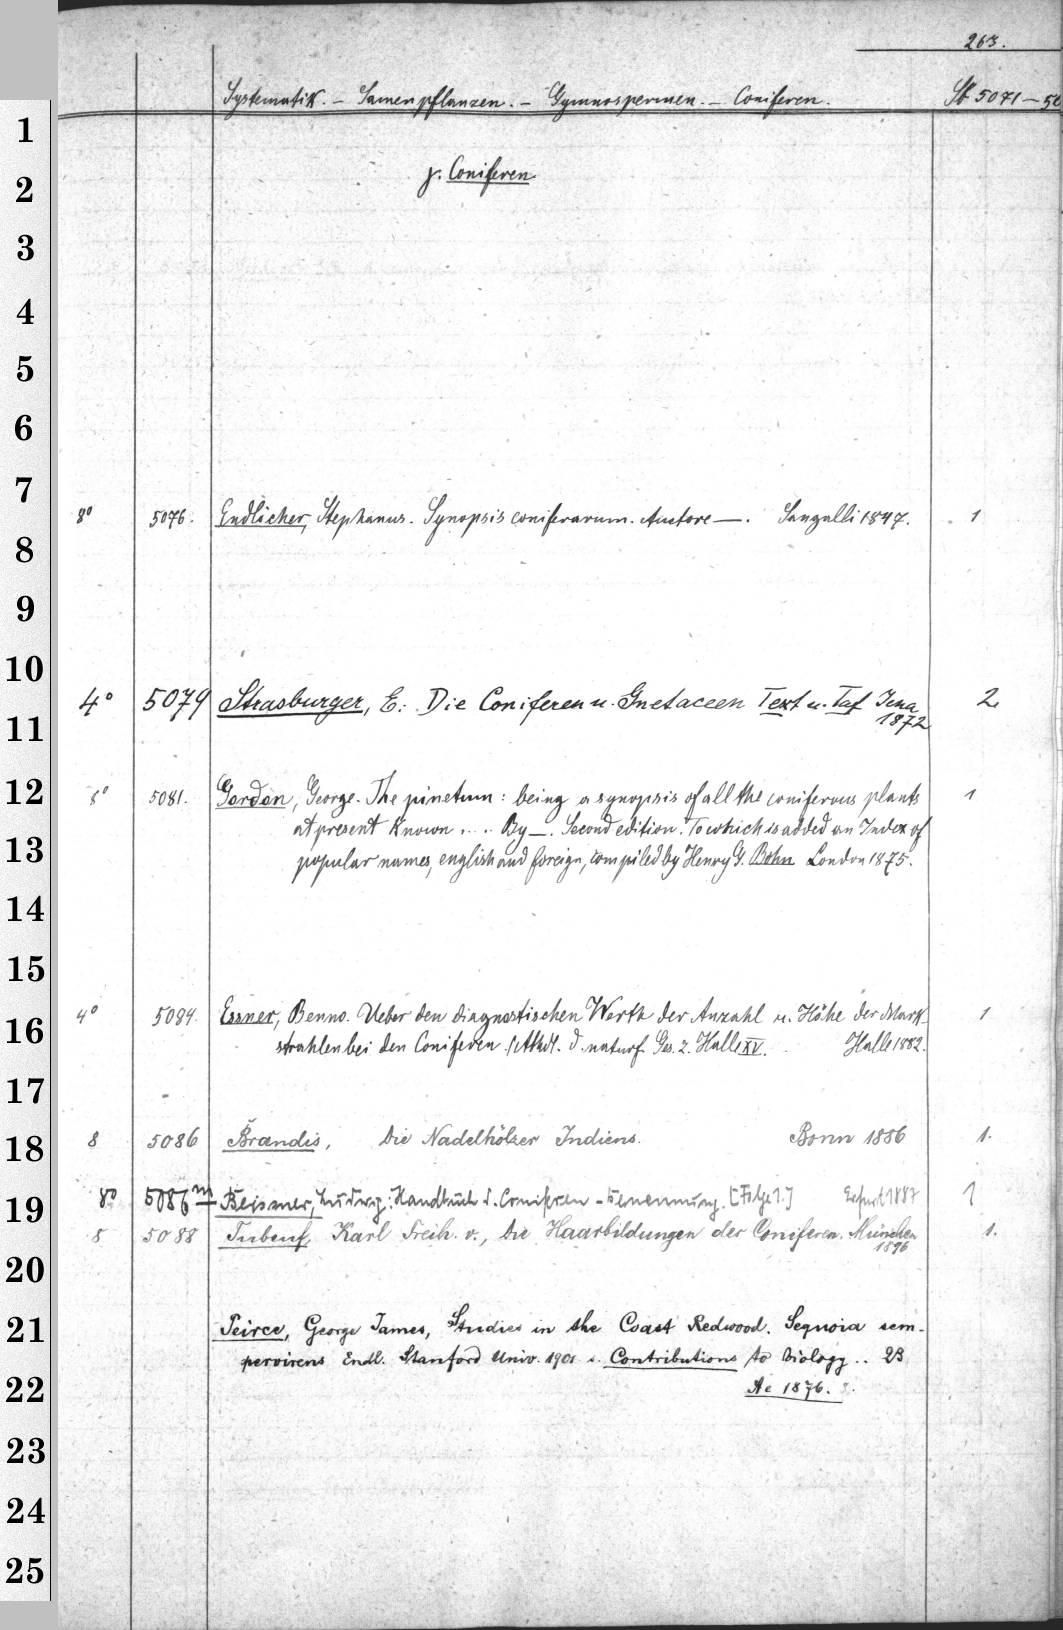 263.
Systematik. – Samenpflanzen. – Gymnospermen. – Coniferen. Sb 5071–50
1
γ. Coniferen
2
3
4
5
6
7
8° 5076. Endlicher, Stephanus. Synopsis coniferarum. Auctore —. Sangalli 1847. 1
8
9
10
4° 5079 Strasburger, E.: Die Coniferen u. Gnetaceen Text u. Taf Jena 2
1872
11
12
8° 5081. Gordon, George. The pinetum: being a synopsis of all the coniferous plants 1
at present known .... By —. Second edition. To which is added an Index of
13
popular names, english and foreign, compiled by Henry G. Bohn London 1875.
14
15
4° 5084. Essner, Benno. Ueber den diagnostischen Werth der Anzahl u. Höhe der Mark- 1
16
strahlen bei den Coniferen. (Abhdl. d. naturf. Ges. z. Halle XV. Halle 1882.
17
8 5086 Brandis, Die Nadelhölzer Indiens. Bonn 1886 1.
18
8° 5086m Beissner, Ludwig: Handbuch d. Coniferen-Benennung. [Folge 1.] Erfurt 1887 1
19
8 5088 Tubeuf, Karl Freih. v., Die Haarbildungen der Coniferen. München 1.
1896
20
21
Peirce, George James, Studies in the Coast Redwood. Sequoia sem-
pervirens Endl. Stanford Univ. 1901 s. Contributions to biology .. 23
22
Ae 1876.
23
24
25